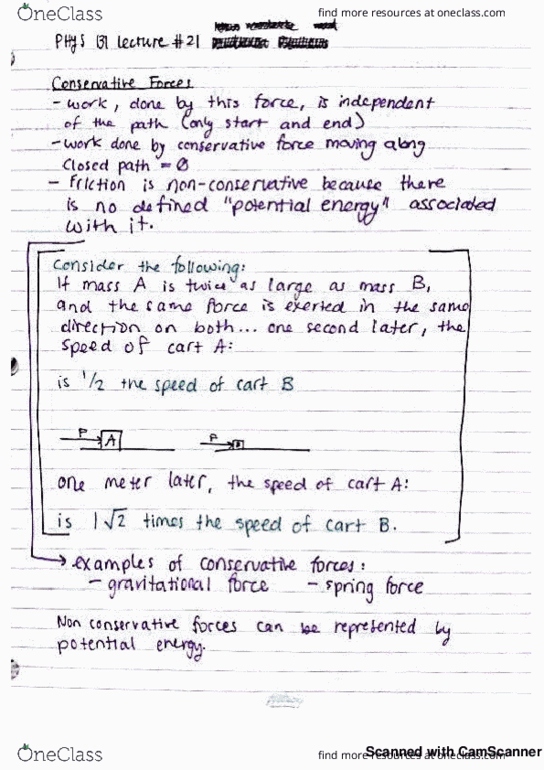 OneClass
find more resources at oneclass.com
PHYS 131 lecture #21
Conservative Forces
- work, done by this force, is independent
of the path (only start and end)
- work done by conservative force moving along
closed path = Ø
- Friction is non-conservative because there
is no defined "potential energy" associated
with it.
Consider the following:
If mass A is twice as large as mass B,
and the same force is exerted in the same
direction on both... one second later, the
speed of cart A:
is 1/2 the speed of cart B
F A F
one meter later, the speed of cart A:
is 1√2 times the speed of cart B.
→ examples of conservative forces:
- gravitational force - spring force
Non conservative forces can be represented by
potential energy.
OneClass
find more resources at oneclass.com
Scanned with CamScanner